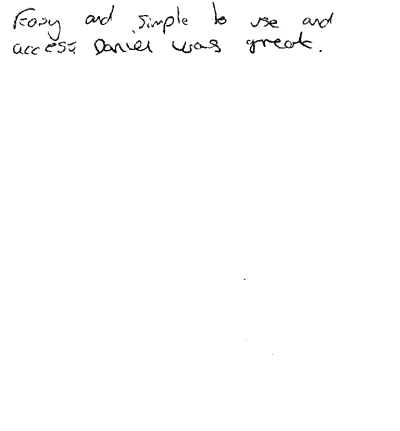 Easy and simple to use and
access. Daniel was great.